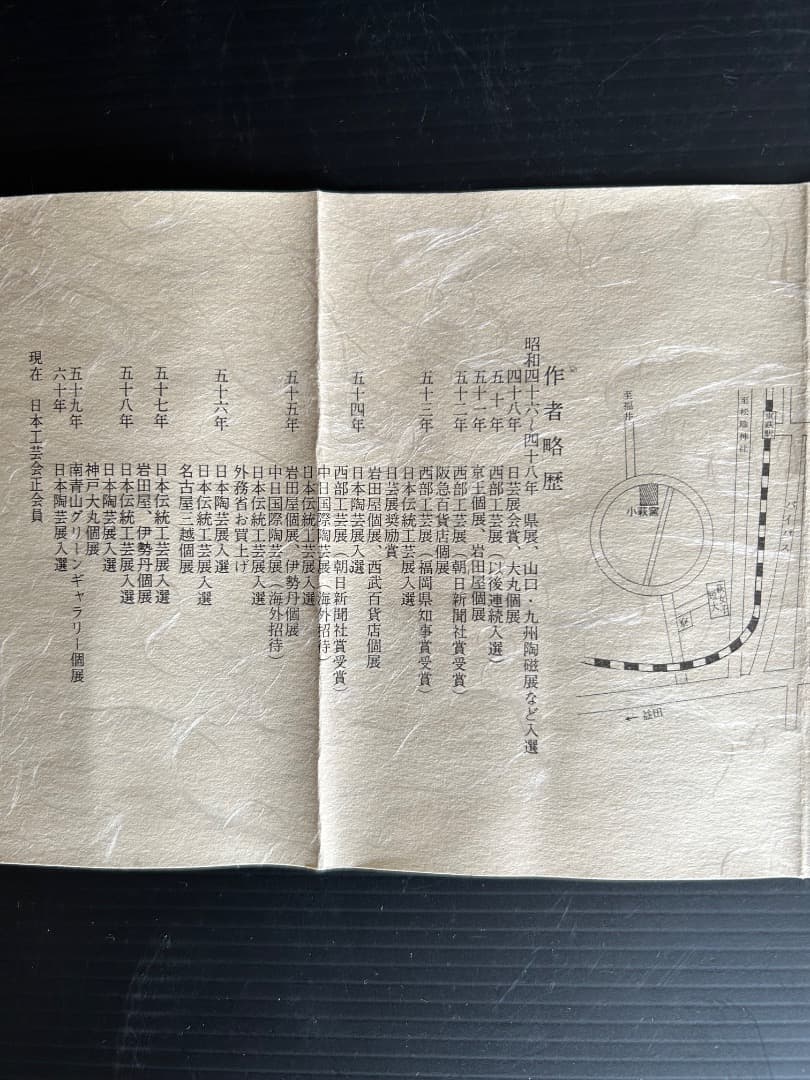 作者略歴
昭和四十六〜四十八年 県展、山口・九州陶磁展など入選
四十八年 日芸展会賞、大丸個展
五十年 西部工芸展(以後連続入選)
五十一年 京王個展、岩田屋個展
五十二年 西部工芸展(朝日新聞社賞受賞)
阪急百貨店個展
五十三年 西部工芸展(福岡県知事賞受賞)
日本伝統工芸展入選
日芸展奨励賞
岩田屋個展、西武百貨店個展
五十四年 日本陶芸展入選
西部工芸展(朝日新聞社賞受賞)
中日国際陶芸展(海外招待)
日本伝統工芸展入選
五十五年 岩田屋個展、伊勢丹個展
中日国際陶芸展(海外招待)
日本伝統工芸展入選
外務省お買上げ
五十六年 日本陶芸展入選
日本伝統工芸展入選
名古屋三越個展
五十七年 日本伝統工芸展入選
岩田屋、伊勢丹個展
五十八年 日本伝統工芸展入選
日本陶芸展入選
神戸大丸個展
五十九年 南青山グリーンギャラリー個展
六十年 日本陶芸展入選
現在 日本工芸会正会員
至福井
小萩窯
至松陰神社
東萩駅
バイパス
←益田